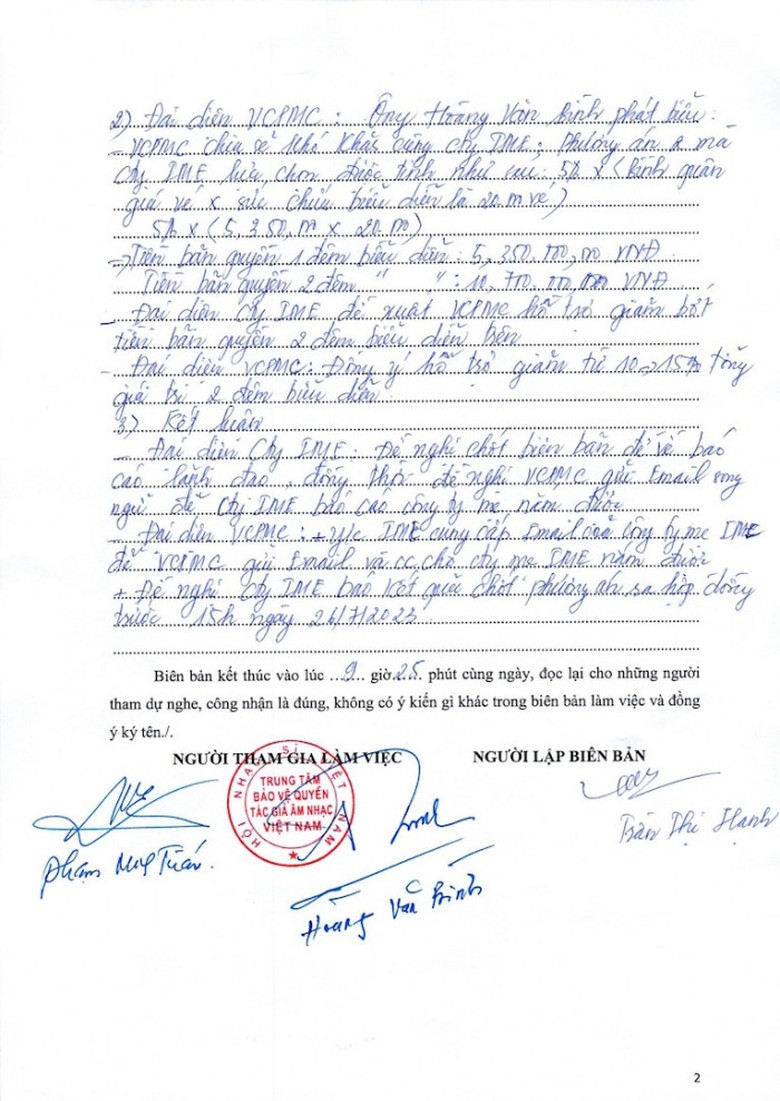 2) Đại diện VCPMC : Ông Hoàng Văn Bình phát biểu :
- VCPMC chia sẻ khó khăn cùng cty IME ; Phương án 2 mà
Cty IME lựa chọn được tính như sau : 5% x (Bình quân
giá vé x sức chứa biểu diễn là 20.m vé)
5% x (5,350,m x 20.m)
=> Tiền bản quyền 1 đêm biểu diễn : 5,350.000,000 VNĐ
Tiền bản quyền 2 đêm " " : 10,700.000,000 VNĐ
- Đại diện Cty IME đề xuất VCPMC hỗ trợ giảm bớt
tiền bản quyền 2 đêm biểu diễn trên
- Đại diện VCPMC : Đồng ý hỗ trợ giảm từ 10 -> 15% tổng
giá trị 2 đêm biểu diễn.
3) Kết luận
- Đại diện Cty IME : Đề nghị chốt biên bản để về báo
cáo lãnh đạo, đồng thời đề nghị VCPMC gửi Email song
ngữ để Cty IME báo cáo công ty mẹ nắm được
- Đại diện VCPMC : + y/c IME cung cấp Email của công ty mẹ IME
để VCPMC gửi Email và cc cho cty mẹ IME nắm được
+ Đề nghị Cty IME báo kết quả chốt phương án sa hợp đồng
trước 15h ngày 26/7/2023
Biên bản kết thúc vào lúc ...9... giờ 25 phút cùng ngày, đọc lại cho những người
tham dự nghe, công nhận là đúng, không có ý kiến gì khác trong biên bản làm việc và đồng
ý ký tên./.
NGƯỜI THAM GIA LÀM VIỆC NGƯỜI LẬP BIÊN BẢN
HỘI NHẠC SĨ VIỆT NAM
TRUNG TÂM
BẢO VỆ QUYỀN
TÁC GIẢ ÂM NHẠC
VIỆT NAM
Trần Thị Hạnh
Phạm Tuấn.
Hoàng Văn Bình
2